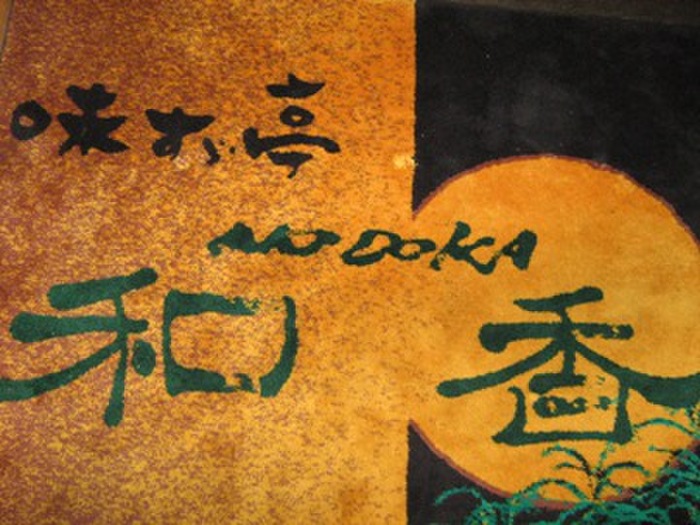 味すゞ亭
NODOKA
和香